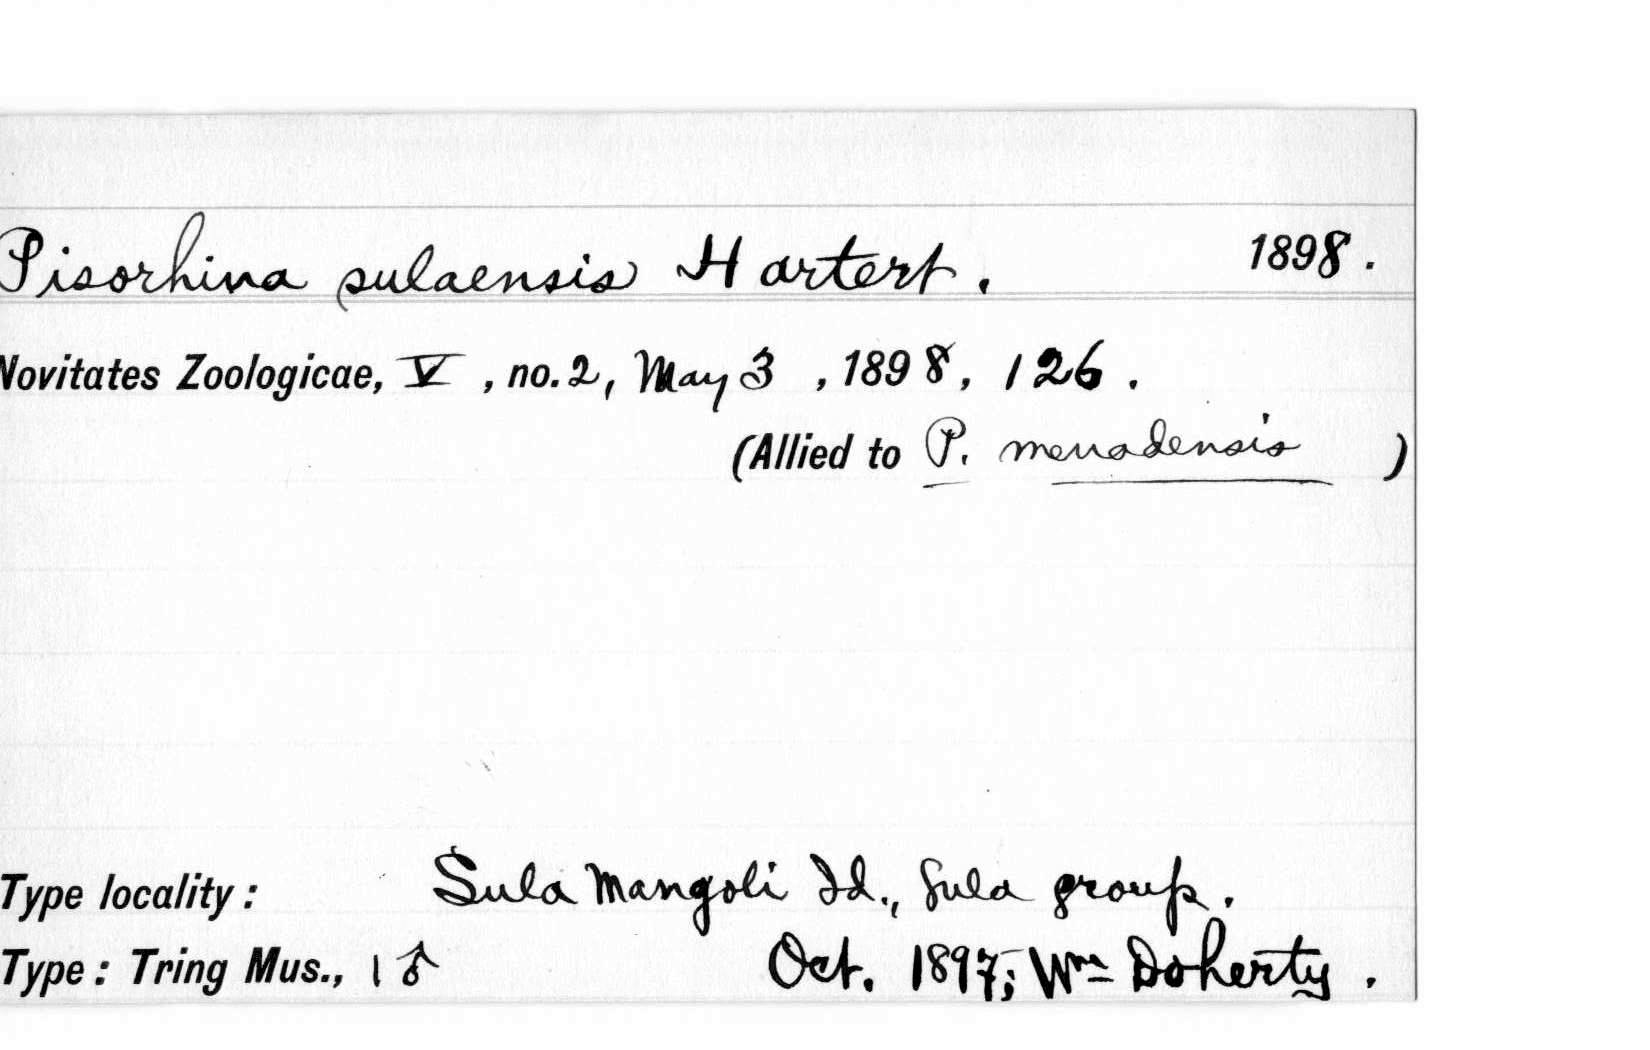 Pisorhina sulaensis Hartert. 1898.
Novitates Zoologicae, V, no. 2, May 3, 1898, 126.
(Allied to P. menadensis)
Type locality: Sula Mangoli Id., Sula group.
Type: Tring Mus., 1 ♂ Oct. 1897; Wm Doherty.